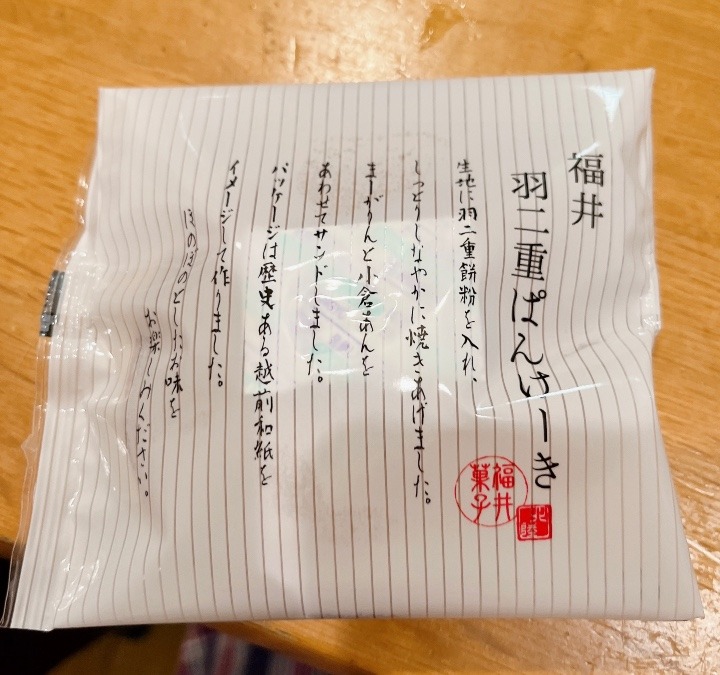 福井
羽二重ぱんけーき
福井
菓子
北陸
生地に羽二重餅粉を入れ、
しっとりしなやかに焼きあげました。
まーがりんと小倉あんを
あわせてサンドしました。
パッケージは歴史ある越前和紙を
イメージして作りました。
ほのぼのとしたお味を
お楽しみください。